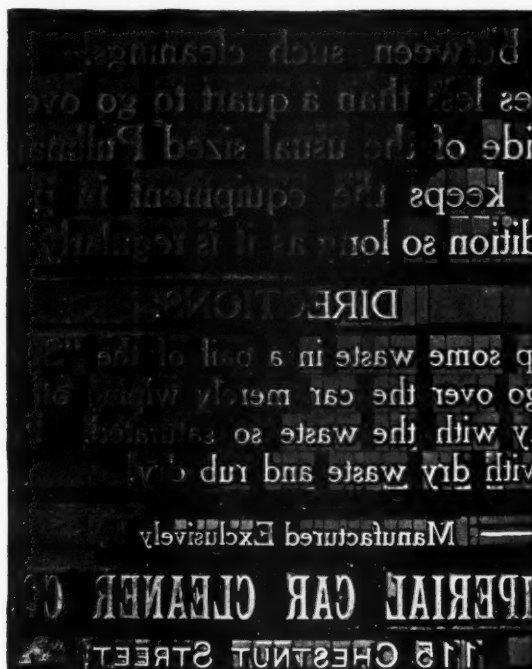 between such cleanings.
es less than a quart to go ove
de of the usual sized Pullman
keeps the equipment in p
dition so long as it is regularly
DIRECTIONS
p some waste in a pail of the "S
go over the car merely wiping off
y with the waste so saturated.
with dry waste and rub dry
Manufactured Exclusively
PERIAL CAR CLEANER CO
115 CHESTNUT STREET